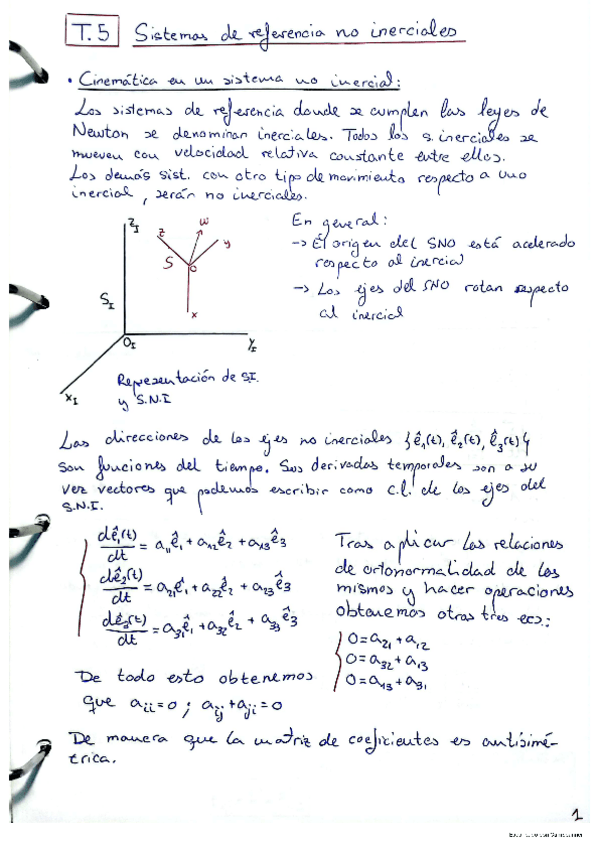 T.5 Sistemas de referencia no inerciales
• Cinemática en un sistema no inercial:
Los sistemas de referencia donde se cumplen las leyes de
Newton se denominan inerciales. Todos los s. inerciales se
mueven con velocidad relativa constante entre ellos.
Los demás sist. con otro tipo de movimiento respecto a uno
inercial, serán no inerciales.
Z_I
z
ω
y
S
o
x
S_I
O_I
Y_I
X_I
Representación de S.I.
y S.N.I
En general:
→ El origen del SNO está acelerado
respecto al inercial
→ Los ejes del SNO rotan respecto
al inercial
Las direcciones de los ejes no inerciales {ê₁(t), ê₂(t), ê₃(t)}
son funciones del tiempo. Sus derivadas temporales son a su
vez vectores que podemos escribir como c.l. de los ejes del
S.N.I.
dê₁(t)/dt = a₁₁ê₁ + a₁₂ê₂ + a₁₃ê₃
dê₂(t)/dt = a₂₁ê₁ + a₂₂ê₂ + a₂₃ê₃
= a₃₁ê₁ + a₃₂ê₂ + a₃₃ê₃
Tras aplicar las relaciones
de ortonormalidad de los
mismos y hacer operaciones
obtenemos otras tres ecs.:
0 = a₂₁ + a₁₂
0 = a₃₂ + a₁₃
0 = a₁₃ + a₃₁
De todo esto obtenemos
que aᵢᵢ = 0 ; aᵢⱼ + aⱼᵢ = 0
De manera que la matriz de coeficientes es antisimé-
trica.
1